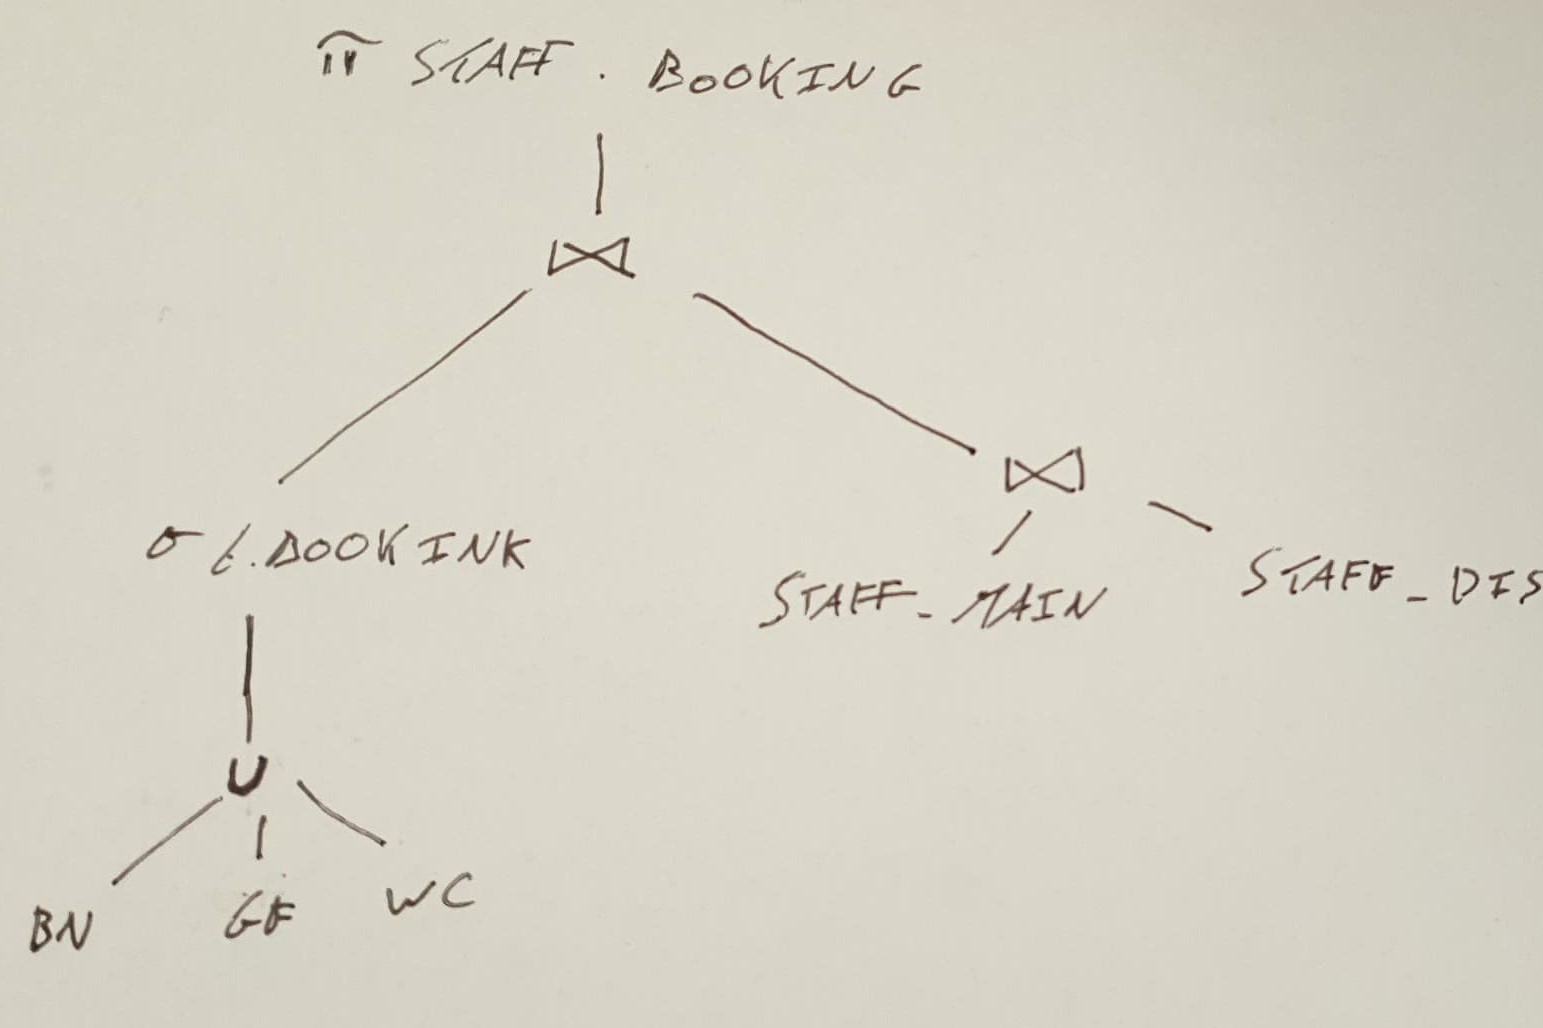 π STAFF . BOOKING
⋈
⋈
σ t.BOOKINK
STAFF_MAIN
STAFF_DIS
U
BN
GF
WC